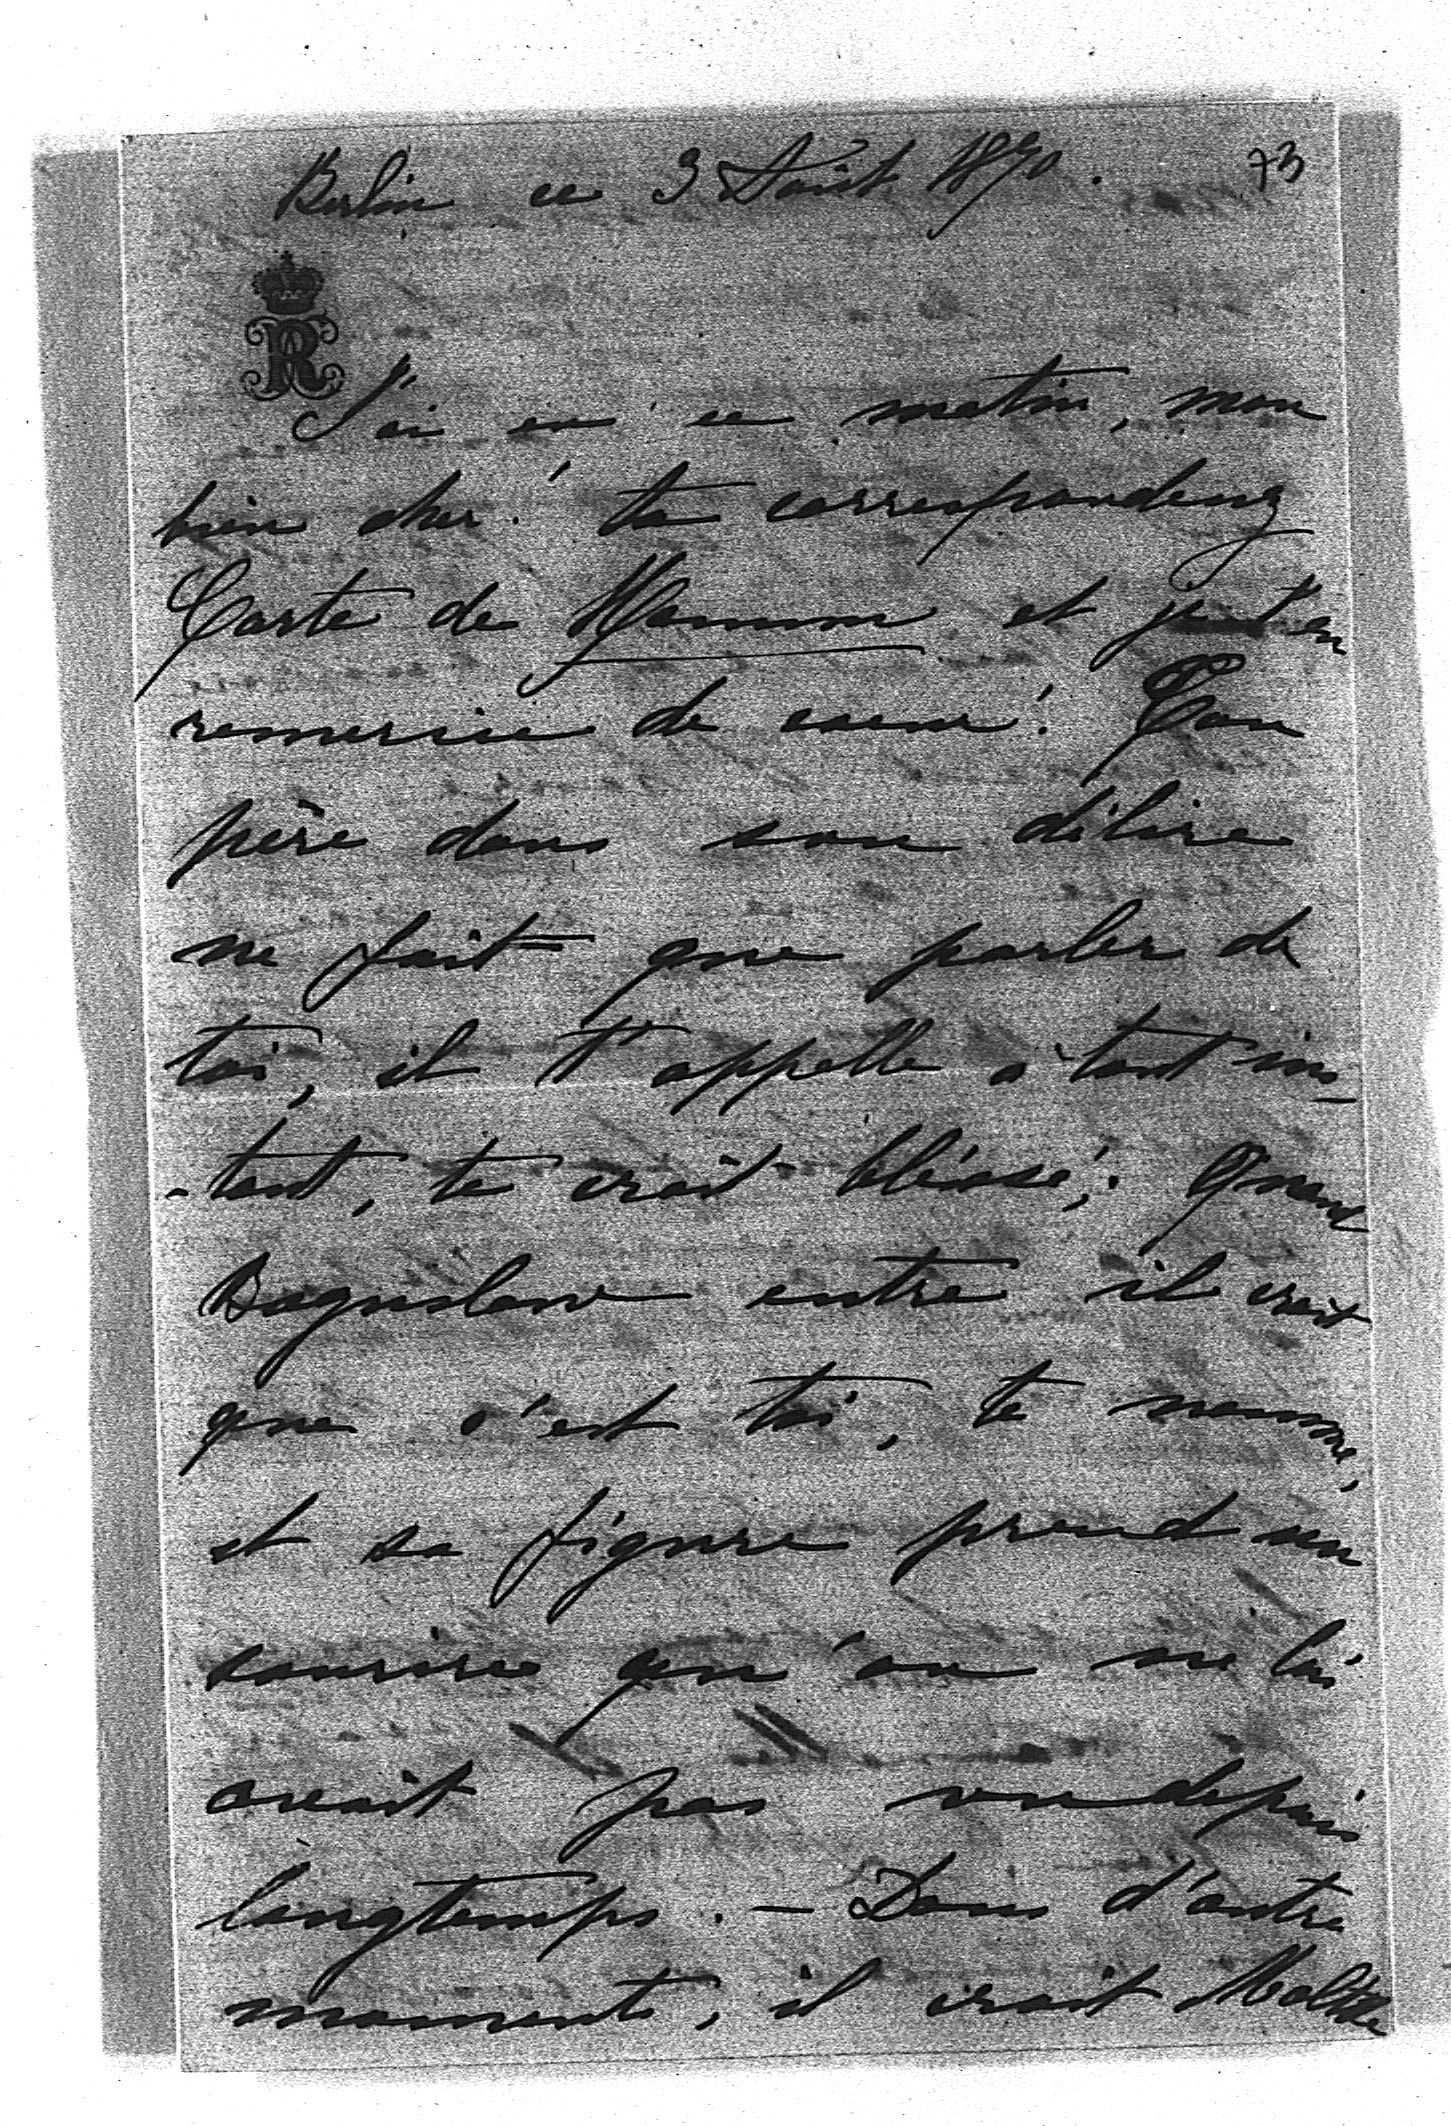 Berlin ce 3 Août 1870.
73
R
J'ai eu ce matin, mon
bien cher! ta correspondenz
Carte de Hamm et je t'en
remercie de coeur! Ton
père dans son délire
ne fait que parler de
toi, il t'appelle à tout ins-
-tant, te croit bléssé; Quand
Boguslaw entre il croit
que c'est toi, te nomme,
et sa figure prend un
sourire qu'on ne lui
avait pas vu depuis
longtemps. – Dans d'autre
moments, il croit Moltke